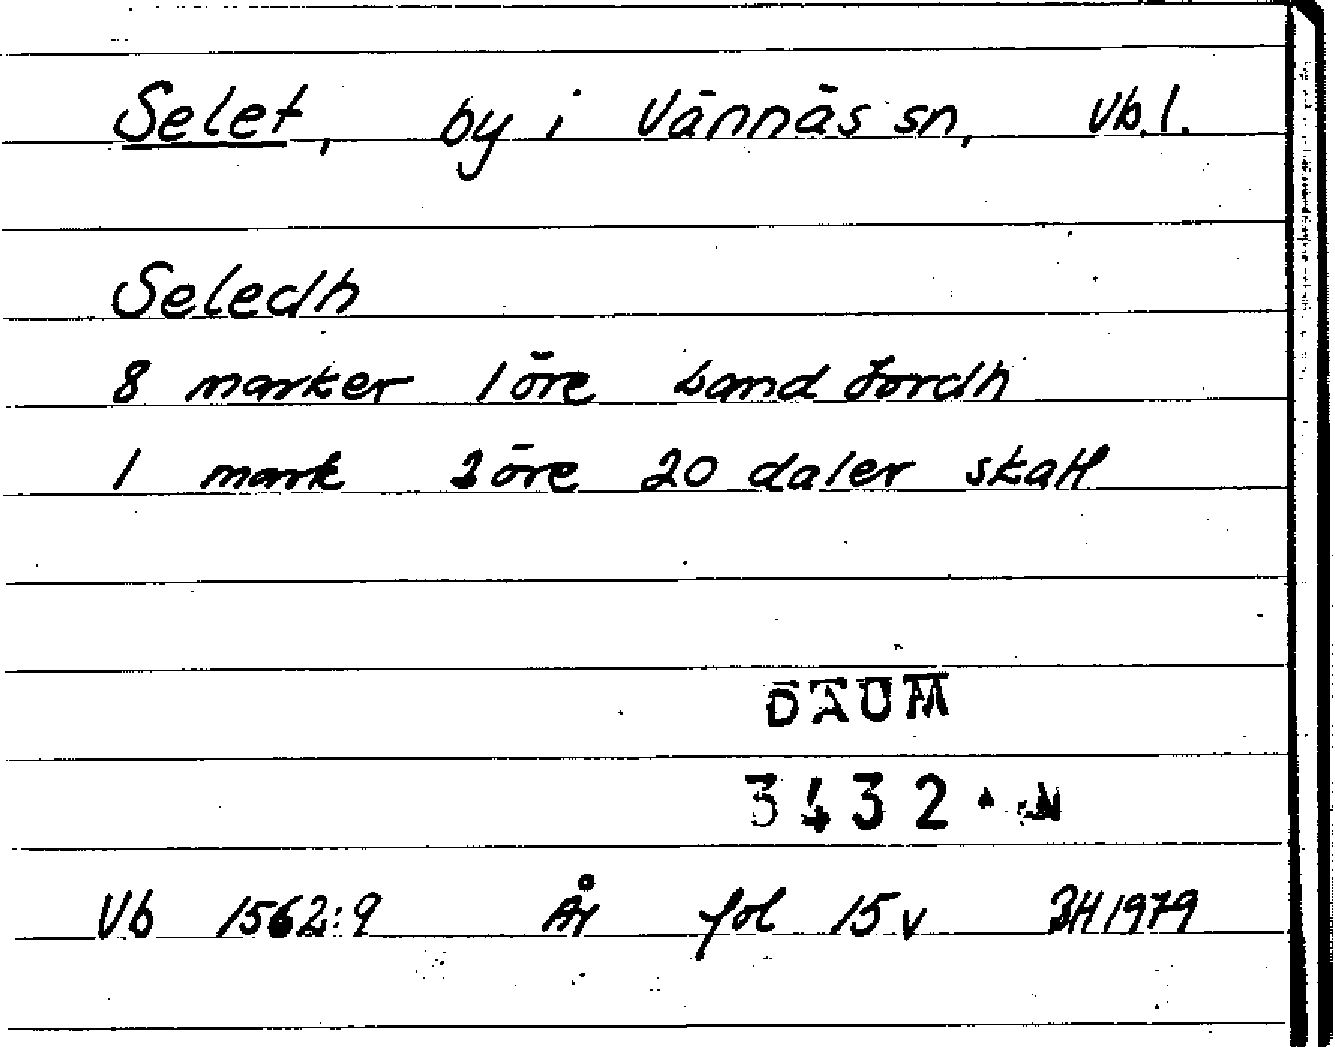 Selet, by i Vännäs sn, Vb.l.
Seledh
8 marker 1 öre Land Jordh
1 mark 2 öre 20 daler skatt
DAUM
3432
Vb 1562:9 År fol 15v BH 1979